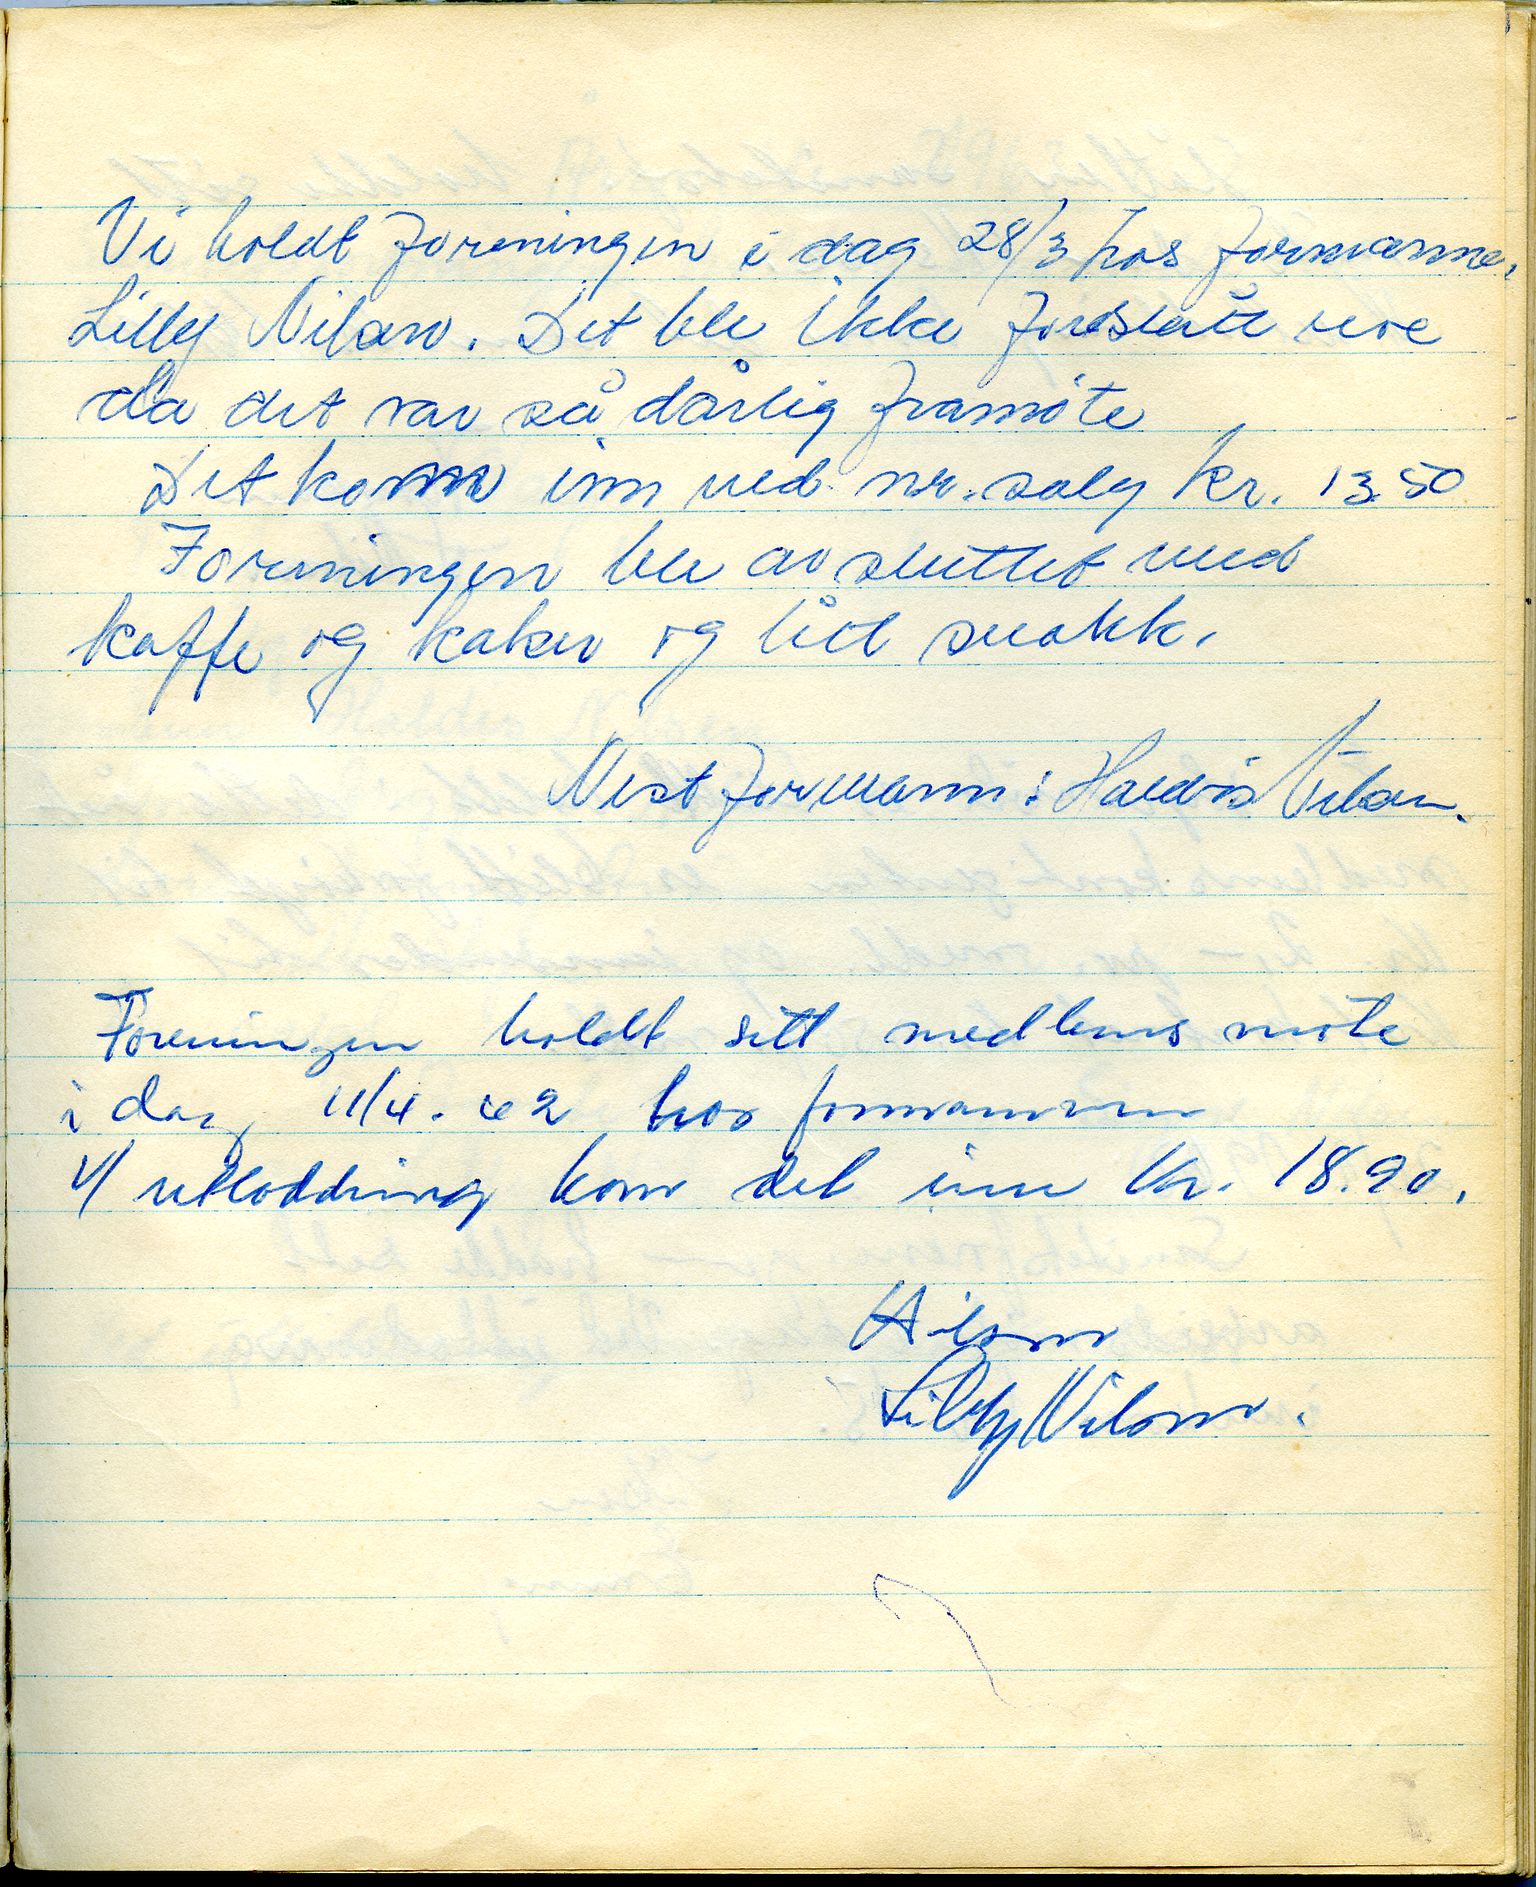 Vi holdt foreningen i dag 28/3 hos formanne.
Lilly Nilsen. Det ble ikke foreslått noe
da det var så dårlig framöte
Det kom inn ved nr. salg kr. 13.50
Foreningen ble avsluttet med
kaffe og kaker og litt snakk.
Nest formann: Haldis Nilsen.
Foreningen holdt sitt medlems möte
i dag 11/4. 62 hos formannen
v/ utloddning kom det inn kr. 18.90.
Hilsen
Lilly Nilsen.